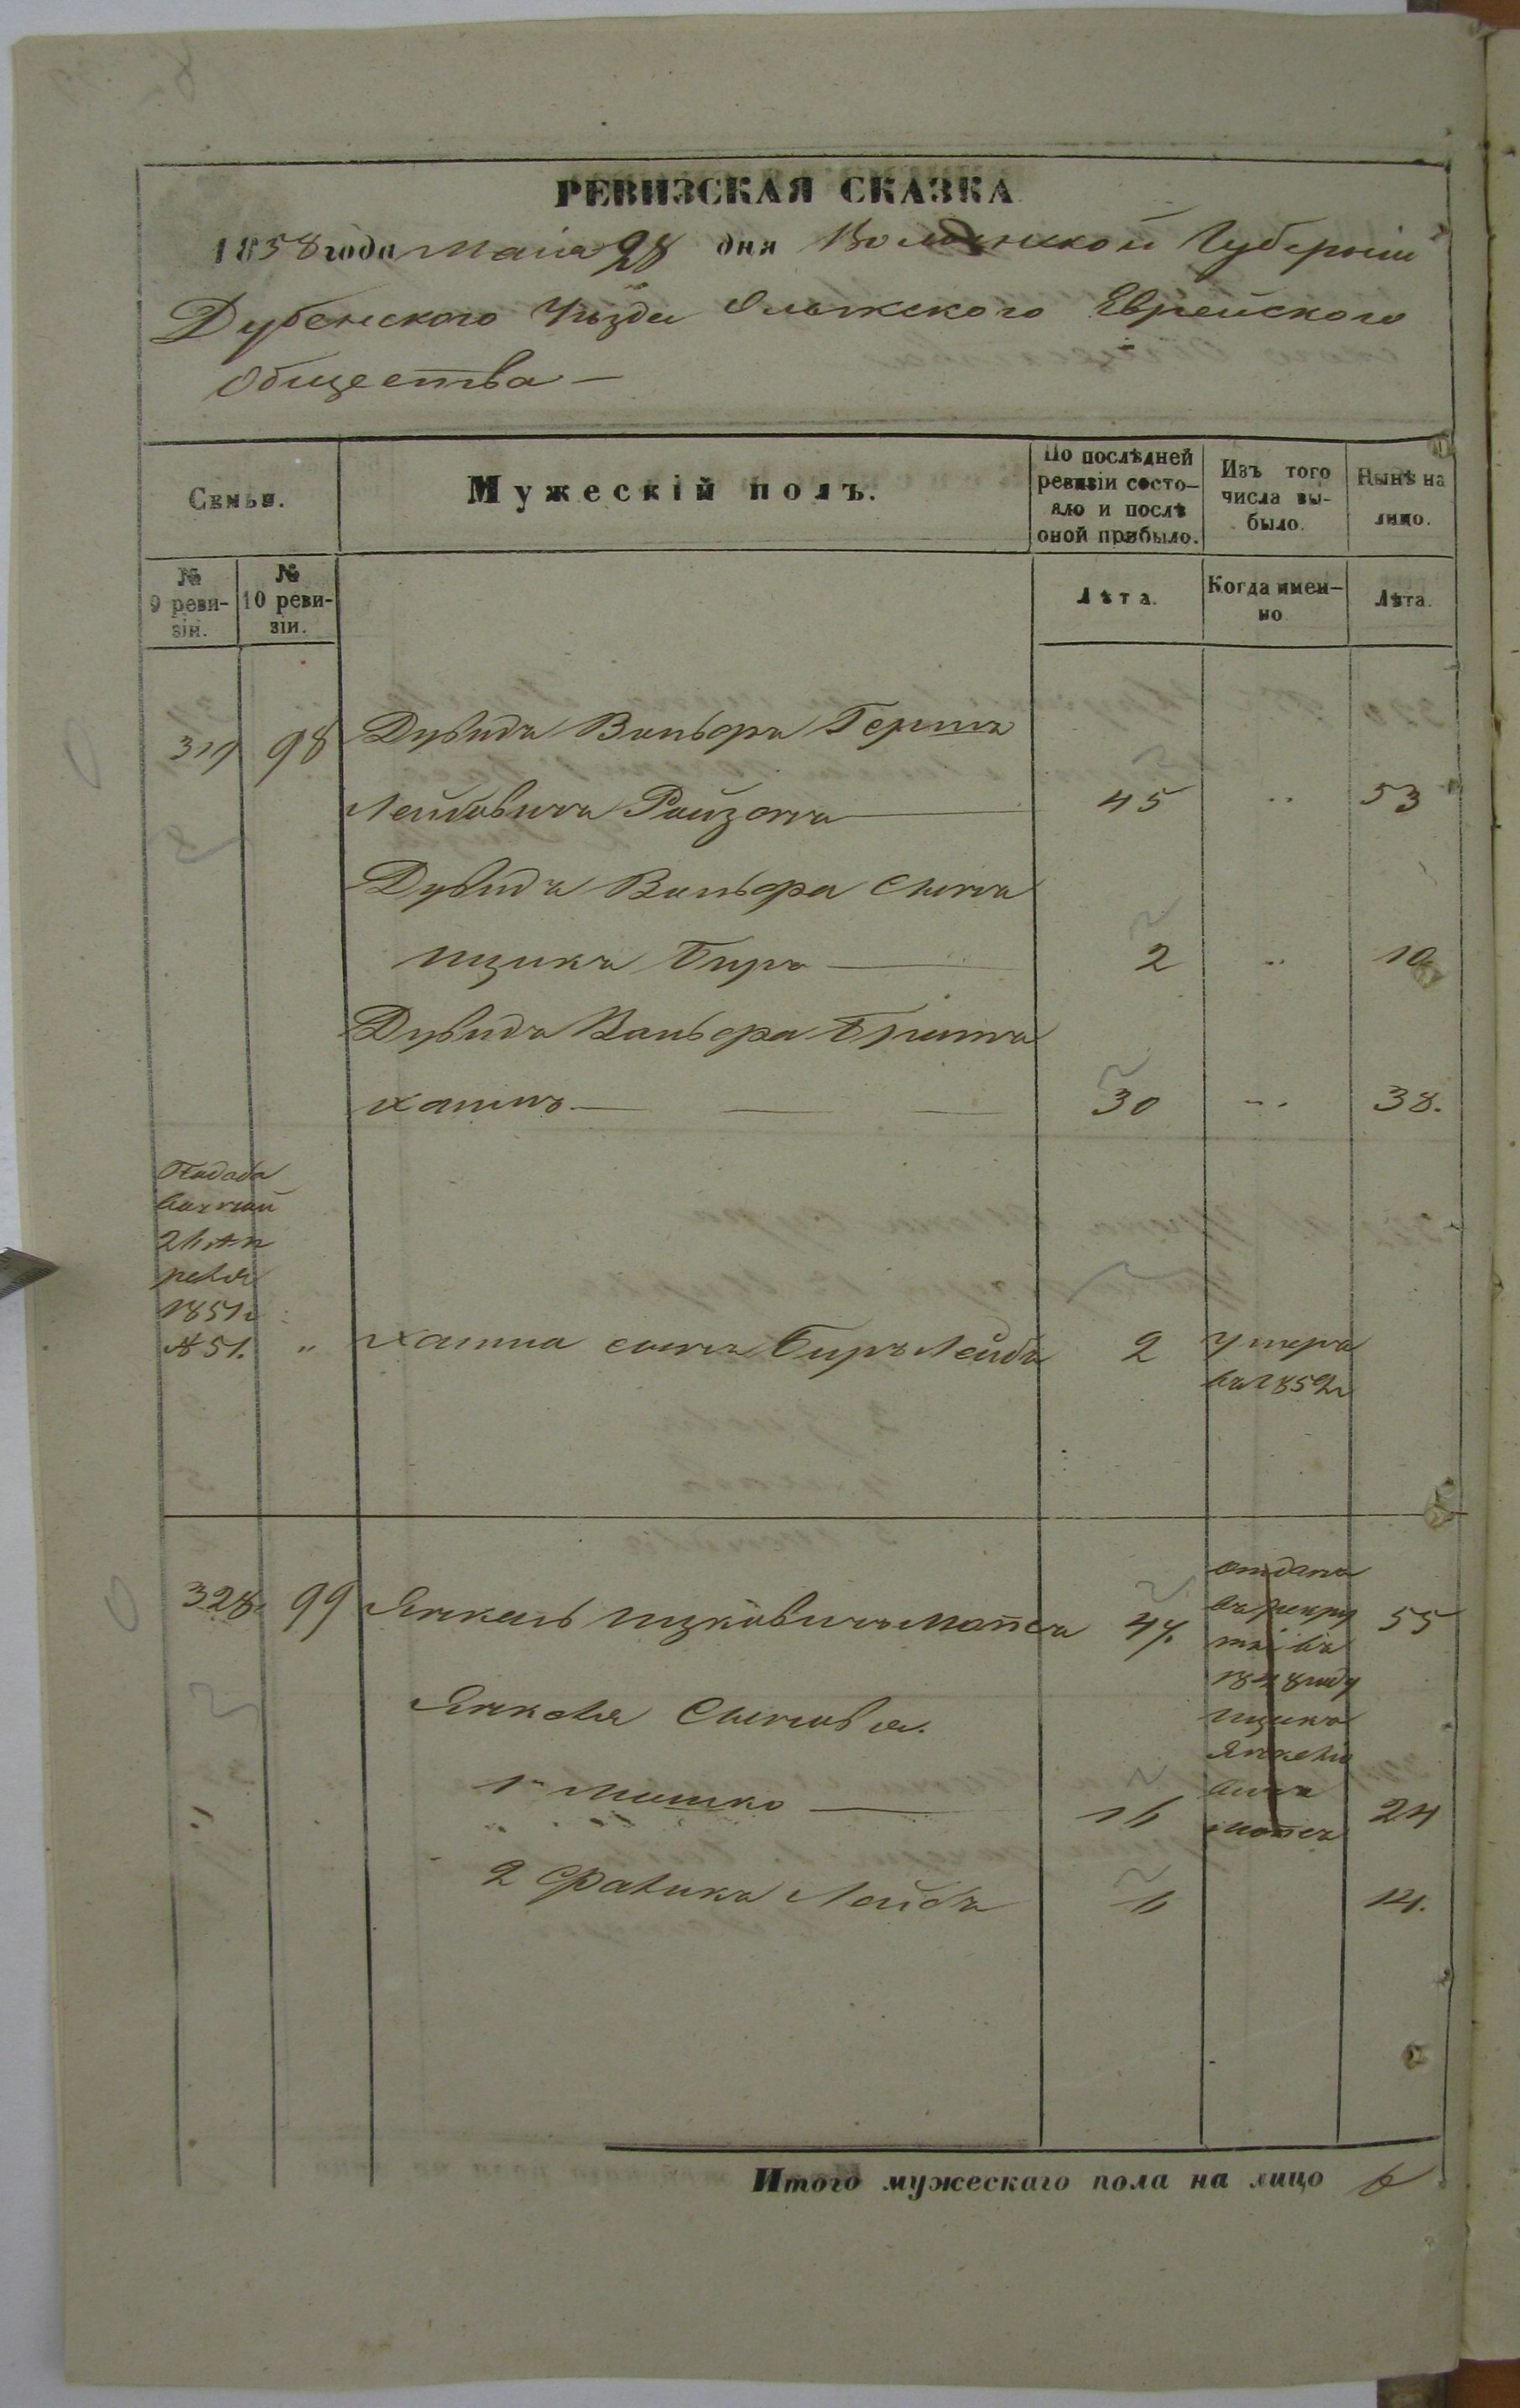 РЕВИЗСКАЯ СКАЗКА
1858 года Маія 28 дня Волынской Губерніи
Дубенского Уѣзда Олыкского Еврейского
Общества —
Семья.
Мужескій полъ.
По послѣдней ревизіи состо-яло и послѣ оной прибыло.
Изъ того числа вы-было.
Нынѣ на лицо.
№ 9 реви-зіи.
№ 10 реви-зіи.
Лѣта.
Когда имен-но
Лѣта.
98 Дувидъ Вольфъ Герша
Лейбовичъ Ройзенъ 45 .. 53
Дувидъ Вольфа Сынъ
Ицикъ Беръ 2 .. 10
Дувидъ Вольфа Братъ
Хаимъ 30 ... 38.
Подода
ванной
26 Ап
реля
1851г
№ 51. „ Хаима сынъ Беръ Лейбъ 2 умеръ
въ 1852г
328. 99 Янкель Ицковичъ Мопсъ 47. 55
отданъ
въ рекру
ты въ
1848 году
Ицикъ
Янкеліо
вичъ
Мопсъ
Янкеля Сыновья.
1й Мошко 16 24
2 Фавикъ Лейбъ 6 14.
Итого мужескаго пола на лицо 6